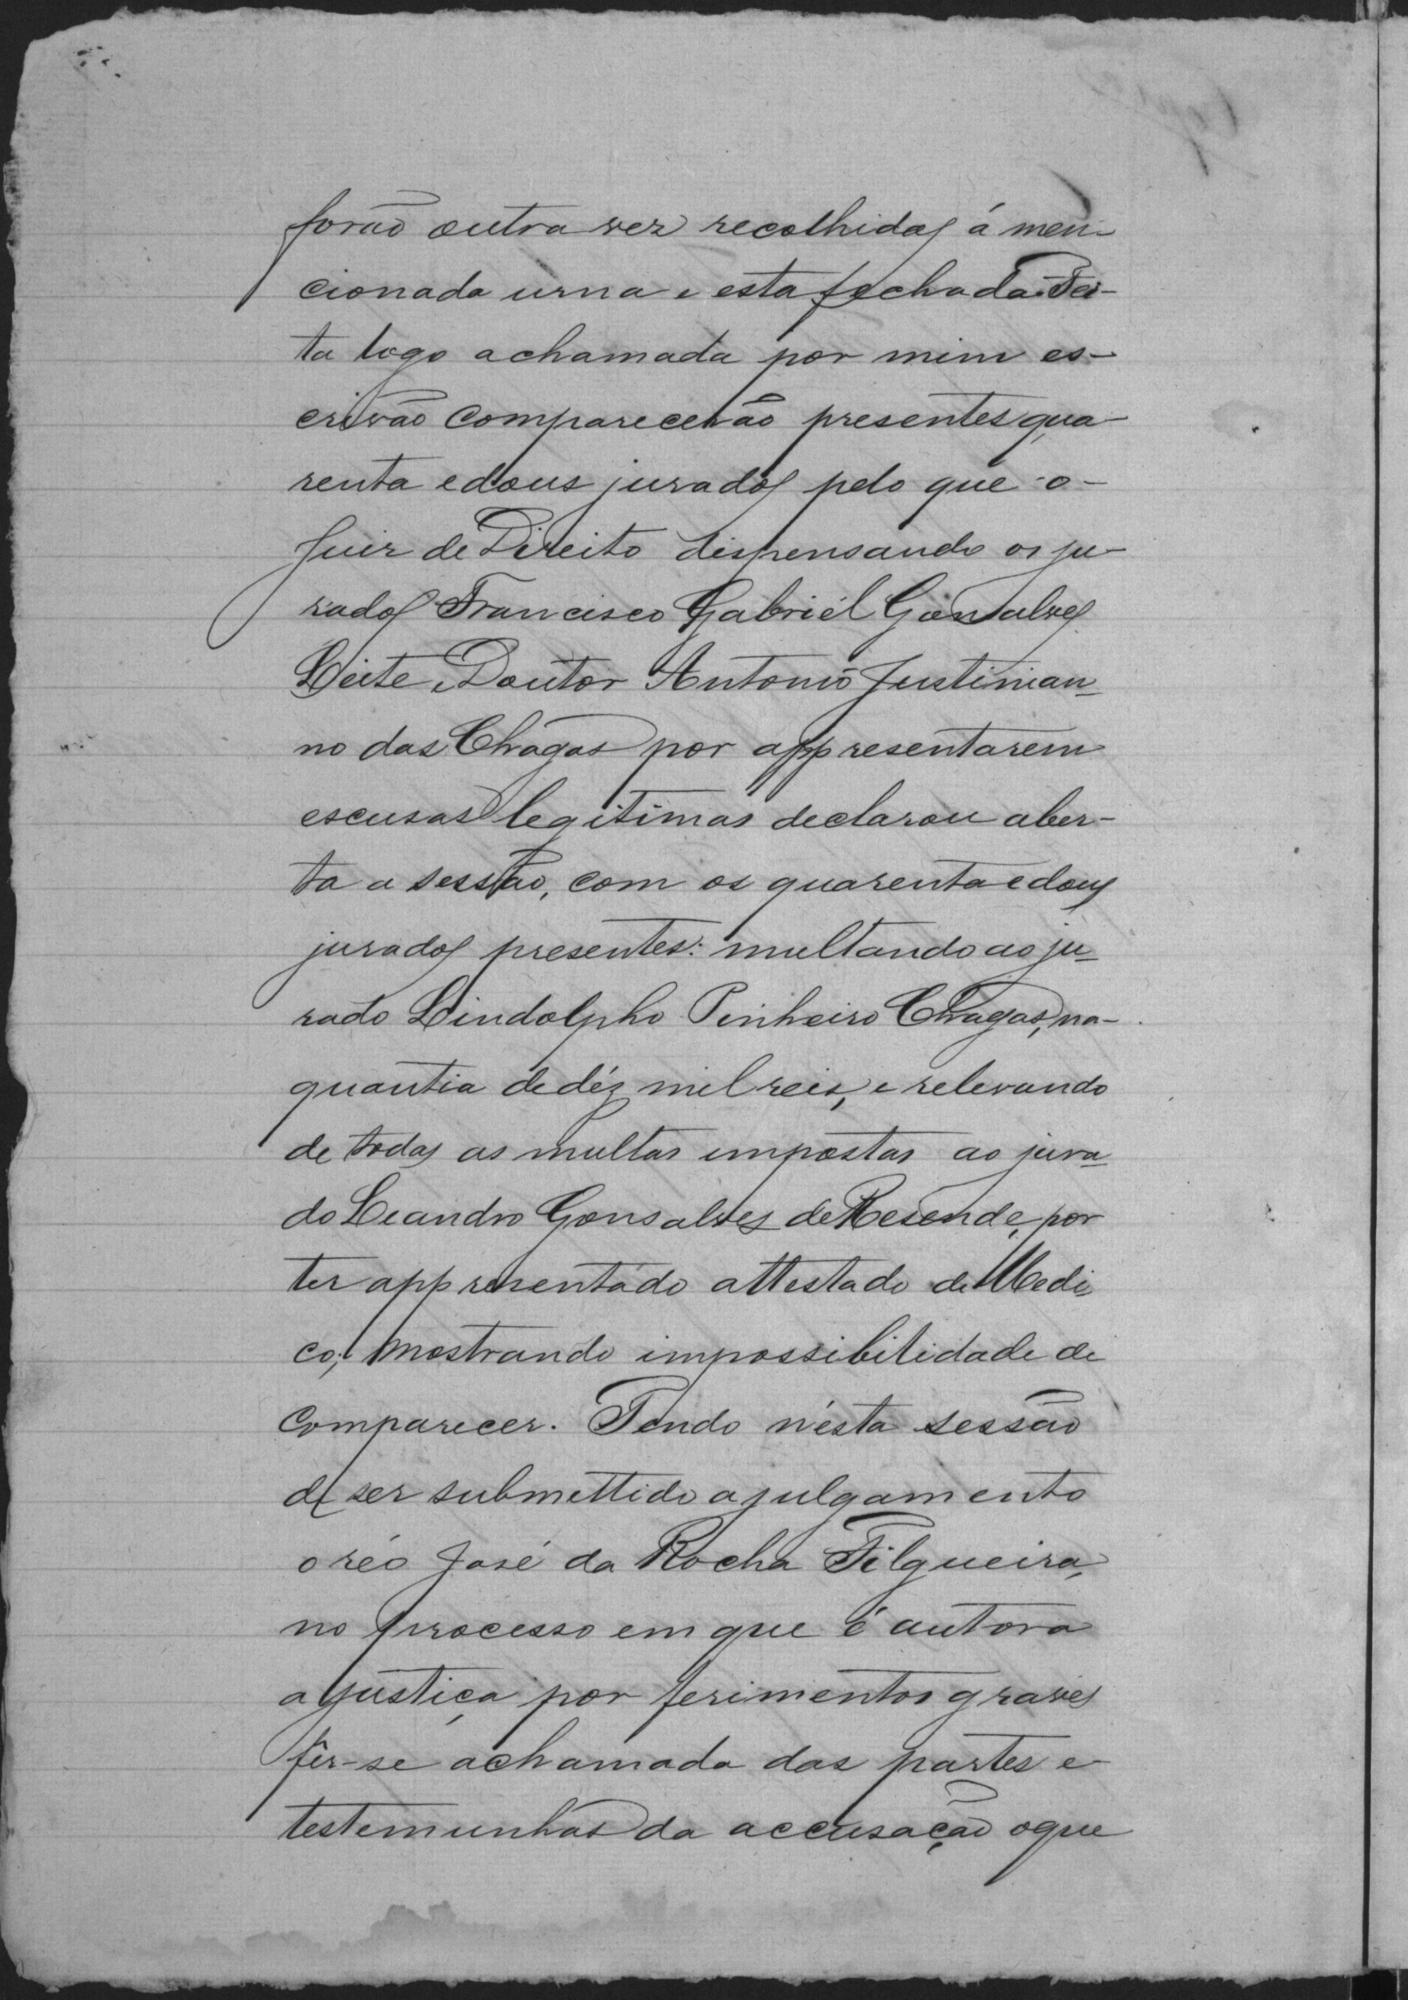 forão outra vez recolhidas á men-
cionada urna e esta fechada. Fei-
ta logo a chamada por mim es-
crivão comparecerão presentes qua-
renta e dous jurados pelo que o
Juiz de Direito dispensando os ju-
rados Francisco Gabriel Gonsalves
Leite, Doutor Antonio Justinian-
no das Chagas por appresentarem
escusas legitimas declarou aber-
ta a sessão, com os quarenta e dous
jurados presentes: multando ao ju-
rado Lindolpho Pinheiro Chagas, na
quantia de déz mil reis, e relevando
de todas as multas impostas ao jura-
do Leandro Gonsalves de Resende, por
ter appresentado attestado de Medi-
co, mostrando impossibilidade de
comparecer. Tendo n'ésta sessão
de ser submettido a julgamento
o réo José da Rocha Filgueira,
no processo em que é autora
a justiça por ferimentos graves
fêz-se a chamada das partes e
testemunhas da accusação o que